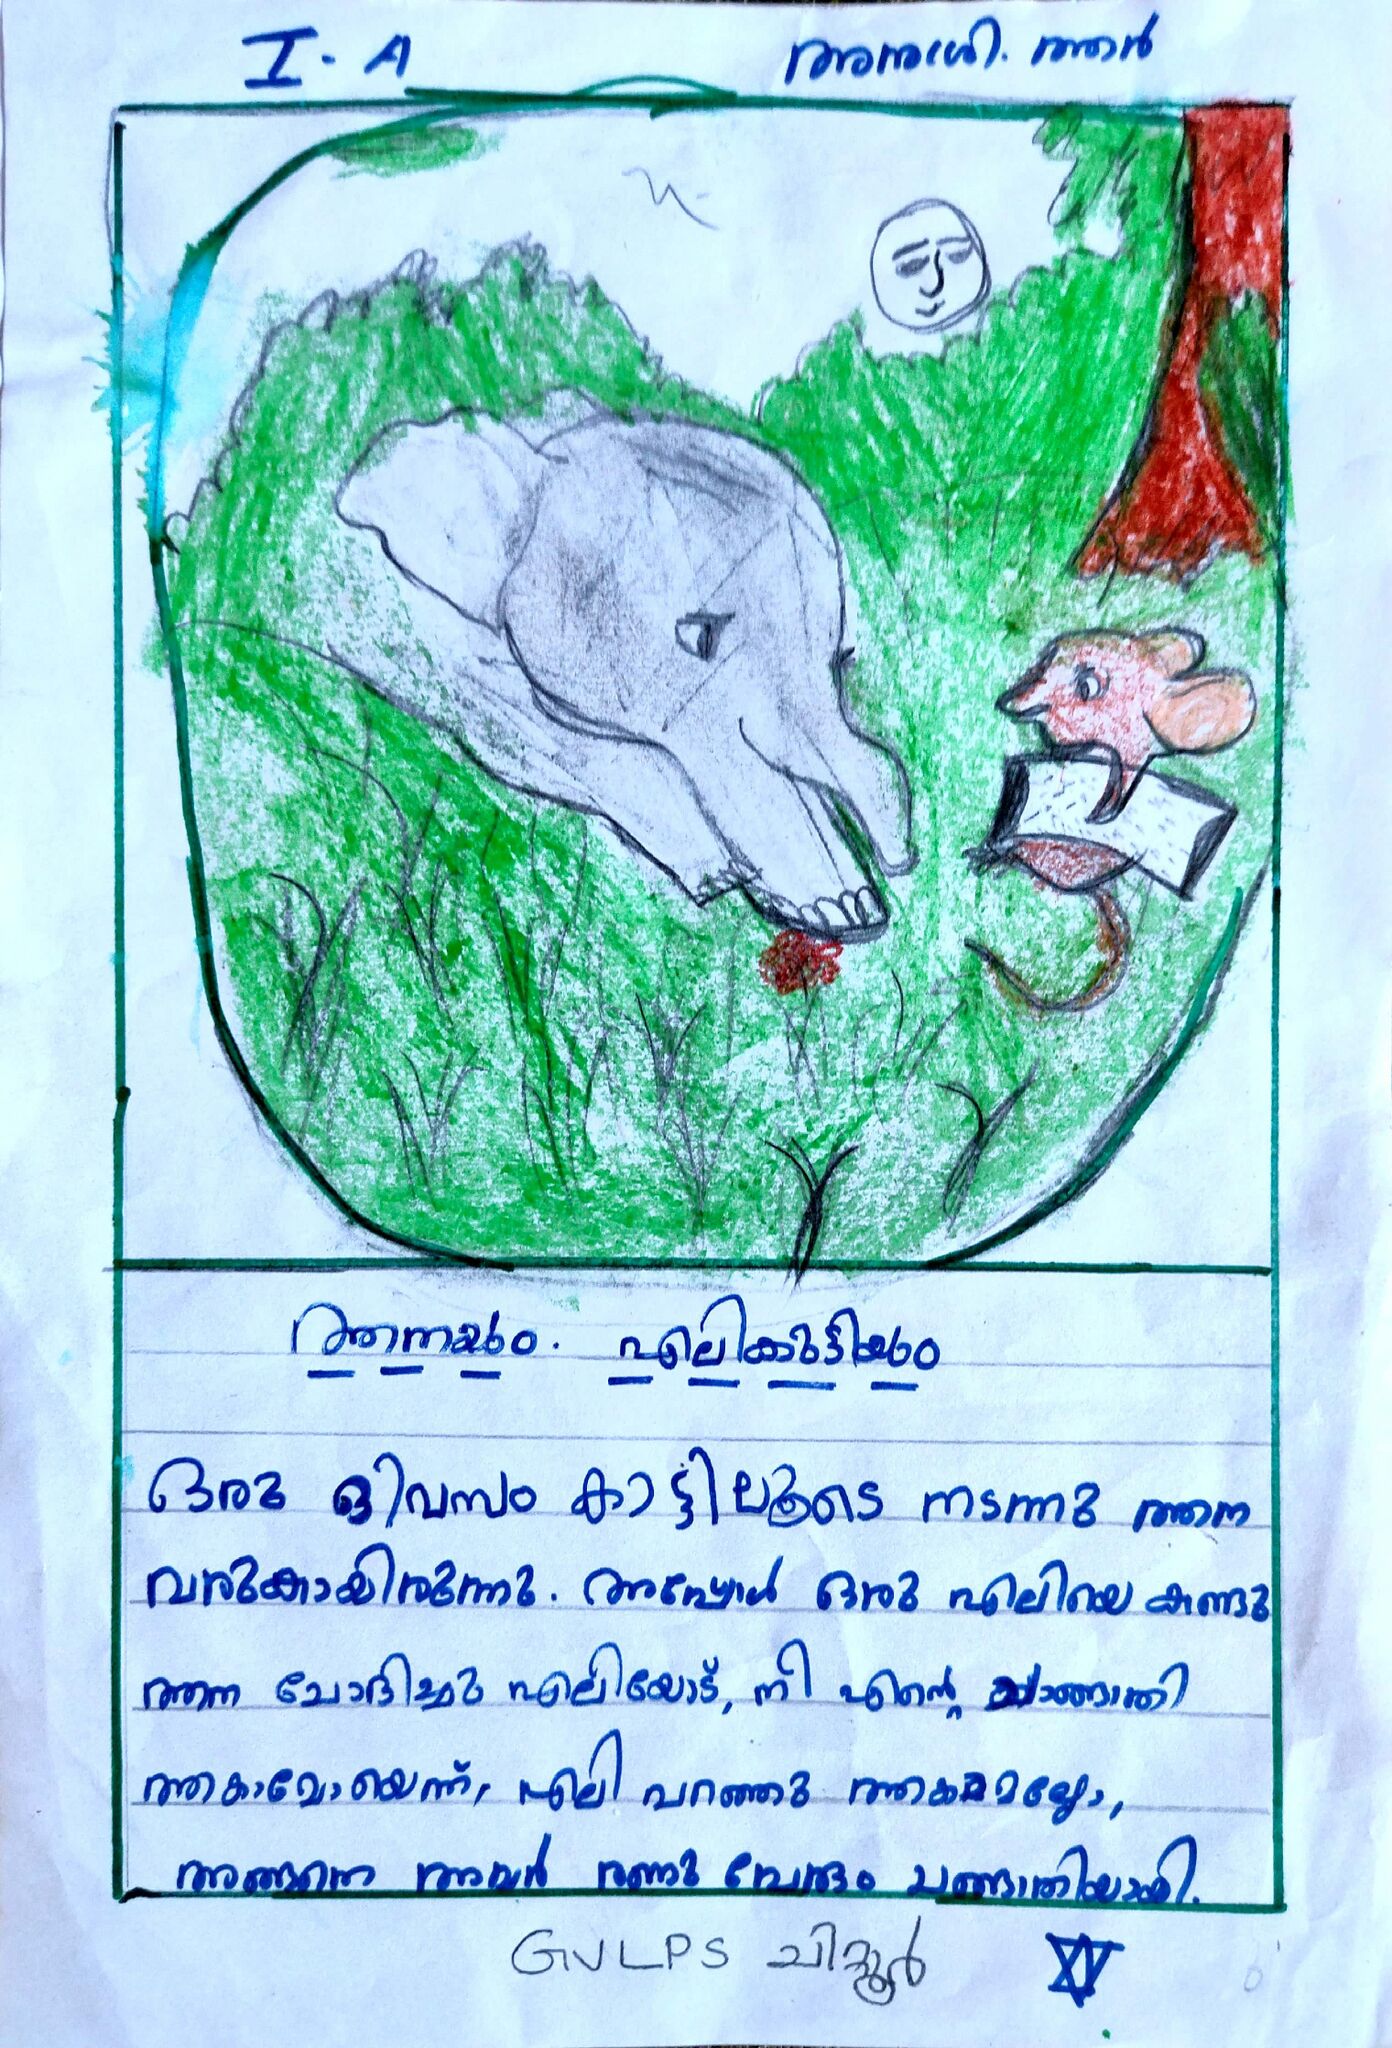 I - A
ആനയും. എലികുട്ടിയും
ഒരു ദിവസം കാട്ടിലൂടെ നടന്നു ആന
വരുകായിരുന്നു. അപ്പോൾ ഒരു എലിയെ കണ്ടു
ആന ചോദിച്ചു എലിയോട്, നീ എന്റെ ചങ്ങാതി
ആകാമോയെന്ന്, എലി പറഞ്ഞു ആകാമല്ലോ,
അങ്ങനെ അവർ രണ്ടു പേരും ചങ്ങാതിയായി.
GVLPS ചിറ്റൂർ